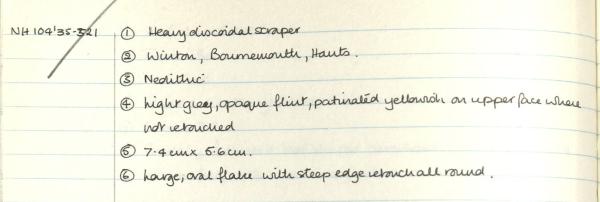 NH 104'35-321 ① Heavy discoidal scraper
② Winton, Bournemouth, Hants.
③ Neolithic
④ Light grey, opaque flint, patinated yellowish on upper face where
not retouched
⑤ 7.4 cm x 5.6 cm.
⑥ Large, oval flake with steep edge retouch all round.